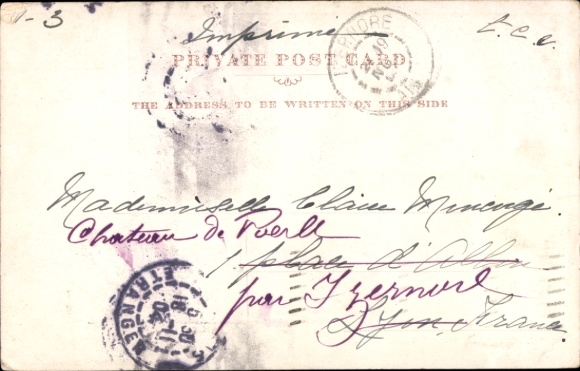 1-3
Imprimé
T.C.V.
PRIVATE POST CARD
THE ADDRESS TO BE WRITTEN ON THIS SIDE
IZERNORE
19
Mademoiselle Claire
Chateau de
1 place d'
par Izernore
Lyon. France
ETRANGER